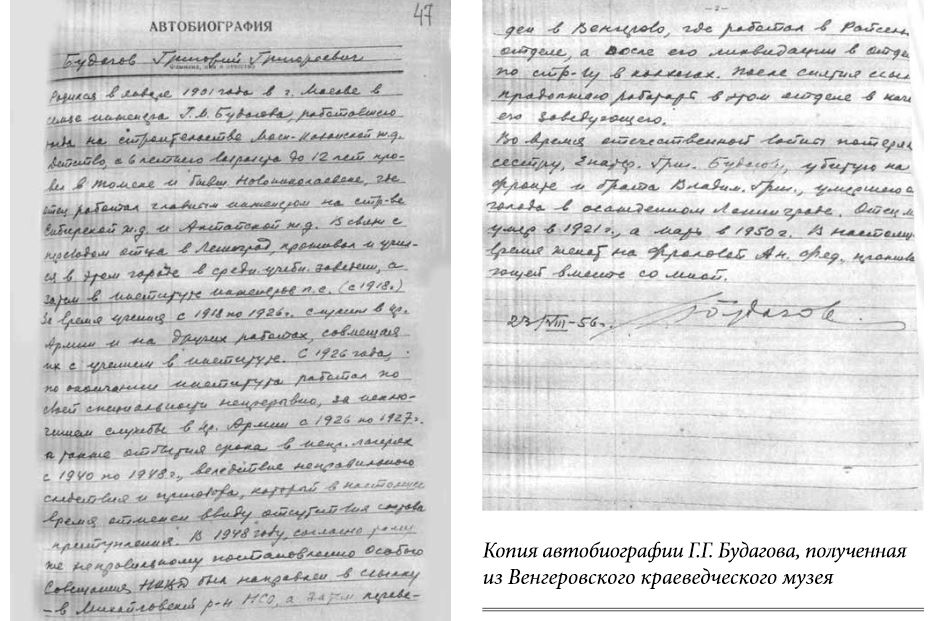 47
АВТОБИОГРАФИЯ
Будагов Григорий Григорьевич
фамилия, имя и отчество
Родился в январе 1901 года в г. Москве в
семье инженера Г.М. Будагова, работавшего
тогда на строительстве Моск.-Казанской ж.д.
Детство, с 6 летнего возраста до 12 лет про-
вел в Томске и бывш. Новониколаевске, где
отец работал главным инженером на стр-ве
Сибирской ж.д. и Алтайской ж.д. В связи с
переводом отца в Ленинград, проживал и учил-
ся в этом городе в средн. учебн. заведении, а
затем в институте инженеров п.с. (с 1918г.)
За время учения с 1918 по 1926г. служил в Кр.
Армии и на других работах, совмещая
их с учением в институте. С 1926 года,
по окончании института работал по
своей специальности непрерывно, за исклю-
чением службы в Кр. Армии с 1926 по 1927г.
а также отбытия срока в испр. лагерях
с 1940 по 1948г., вследствие неправильного
следствия и приговора, который в настоящее
время отменен ввиду отсутствия состава
преступления. В 1948 году, согласно
же неправильному постановлению Особого
Совещания НКВД был направлен в ссылку
– в Михайловский р-н НСО, а затем переве-
- 2 -
ден в Венгерово, где работал в
отделе, а после его ликвидации в отде
по стр-ву в колхозах. После снятия ссыл
продолжаю работать в этом отделе в каче
его заведующего.
Во время отечественной войны потерял
сестру, Григ. Будагову, убитую на
фронте и брата Владим. Григ., умершего с
голода в осажденном Ленинграде. Отец м
умер в 1921г., а мать в 1950г. В настоящ
время женат на Фроловой Ан. Фед., прожива
ющей вместе со мной.
23/VIII-56г. Будагов
Копия автобиографии Г.Г. Будагова, полученная
из Венгеровского краеведческого музея